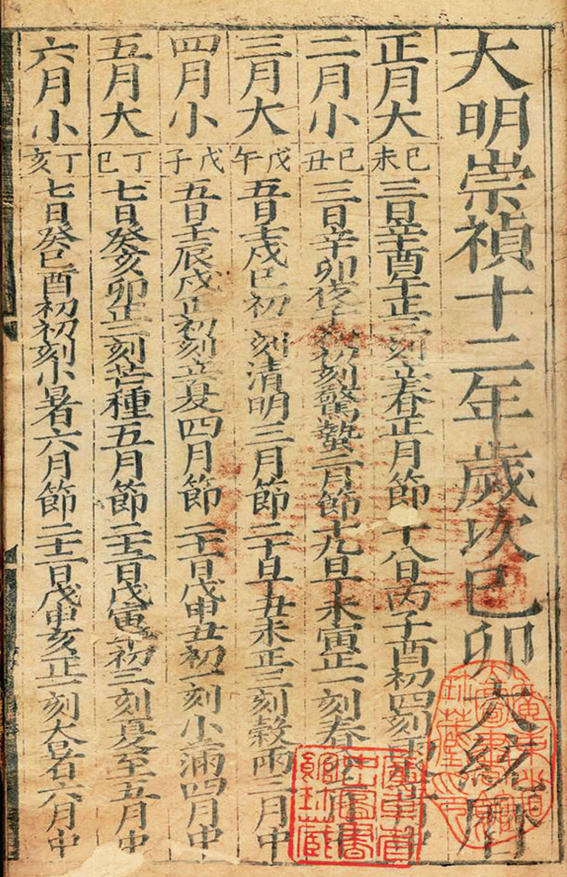 大明崇禎十二年歲次己卯大統曆
正月大 己未 三日辛酉午正三刻立春正月節 十八日丙子酉初四刻雨水正月中
二月小 己丑 三日辛卯夜子初初刻驚蟄二月節 十九日丁未寅正一刻春分二月中
三月大 戊午 五日壬戌巳初一刻清明三月節 二十日丁丑未正三刻穀雨三月中
四月小 戊子 五日壬辰戌正初刻立夏四月節 二十一日戊申丑初一刻小滿四月中
五月大 丁巳 七日癸亥卯正二刻芒種五月節 二十二日戊寅午初三刻夏至五月中
六月小 丁亥 七日癸巳酉初初刻小暑六月節 二十二日戊申亥正一刻大暑六月中